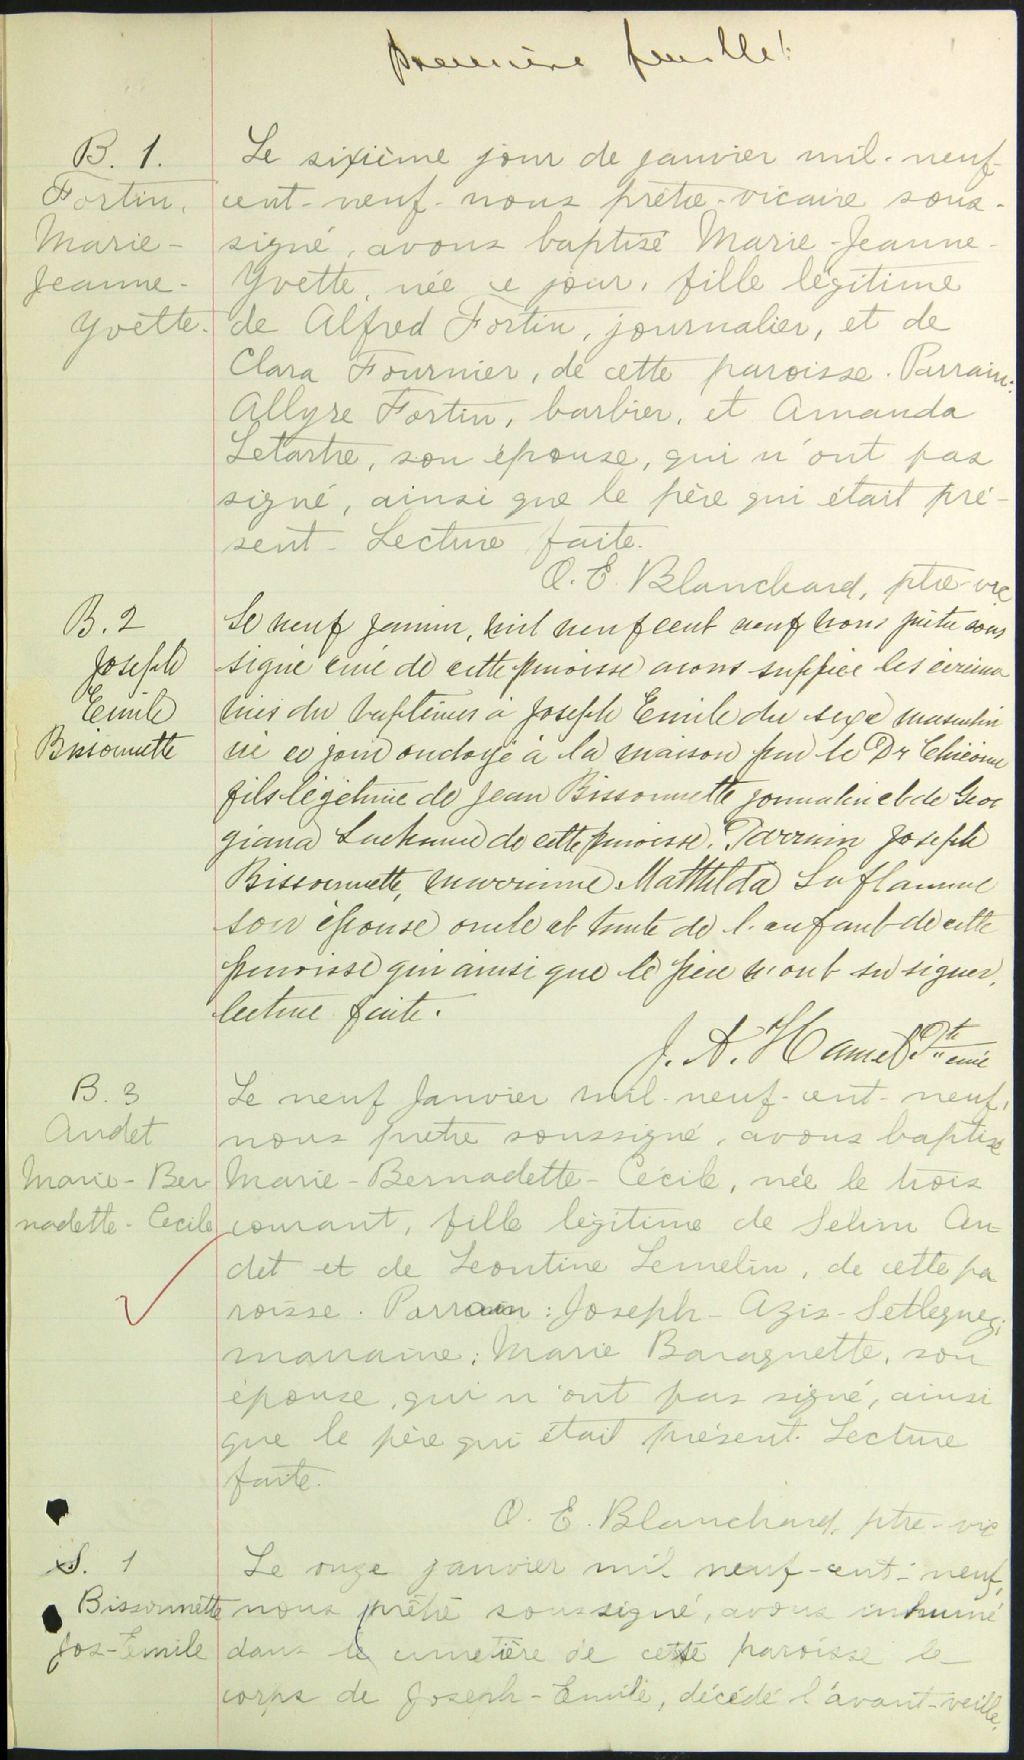 première feuille!
B. 1.
Fortin,
Marie-
Jeanne-
Yvette.
Le sixième jour de janvier mil-neuf-
cent-neuf- nous prêtre-vicaire sous-
signé, avons baptisé Marie-Jeanne-
Yvette, née ce jour, fille légitime
de Alfred Fortin, journalier, et de
Clara Fournier, de cette paroisse. Parrain:
Allyre Fortin, barbier, et Amanda
Letartre, son épouse, qui n'ont pas
signé, ainsi que le père qui était pré-
sent. Lecture faite.
O. E. Blanchard, ptre-vic
B. 2
Joseph
Emile
Bissonnette
Le neuf janvier, mil neuf cent neuf nous prêtre sous
signé curé de cette paroisse avons suppléé les cérémo
nies du baptême à Joseph Emile du sexe masculin
né ce jour ondoyé à la maison par le Dr
fils légitime de Jean Bissonnette journalier et de Geor
giana Lachance de cette paroisse. Parrain Joseph
Bissonnette, marraine Mathilda Laflamme
son épouse oncle et tante de l'enfant de cette
paroisse qui ainsi que le père n'ont su signer,
lecture faite.
J. A. Hamel Ptre curé
B. 3
Audet
Marie-Ber-
nadette-Cecile
Le neuf Janvier mil-neuf-cent-neuf,
nous prêtre soussigné, avons baptisé
Marie-Bernadette-Cécile, née le trois
courant, fille légitime de Selim Au-
det et de Leontine Lemelin, de cette pa
roisse. Parrain: Joseph-Azis-
marraine: Marie Baraquette, son
épouse, qui n'ont pas signé, ainsi
que le père qui était présent. Lecture
faite.
O. E. Blanchard, ptre-vic
S. 1
Bissonnette
Jos-Emile
Le onze janvier mil neuf-cent-neuf,
nous prêtre soussigné, avons inhumé
dans le cimetière de cette paroisse le
corps de Joseph-Emile, décédé l'avant-veille,